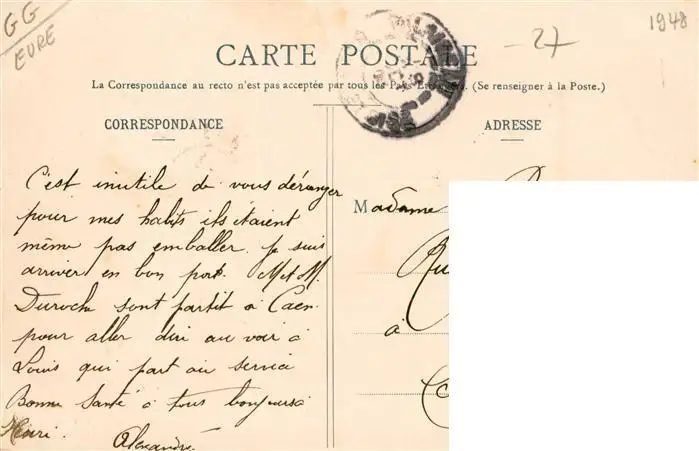 GG
EURE
CARTE POSTALE
- 27
1948
La Correspondance au recto n'est pas acceptée par tous les Pays Etrangers. (Se renseigner à la Poste.)
CORRESPONDANCE
C'est inutile de vous déranger
pour mes habits ils étaient
même pas emballer. Je suis
arriver en bon port. M et M.
Duroche sont partit à Caen
pour aller dire au voir à
Louis qui part au service
Bonne Santé à tous bonjours à
Henri.
Alexandre
ADRESSE
Madame
à